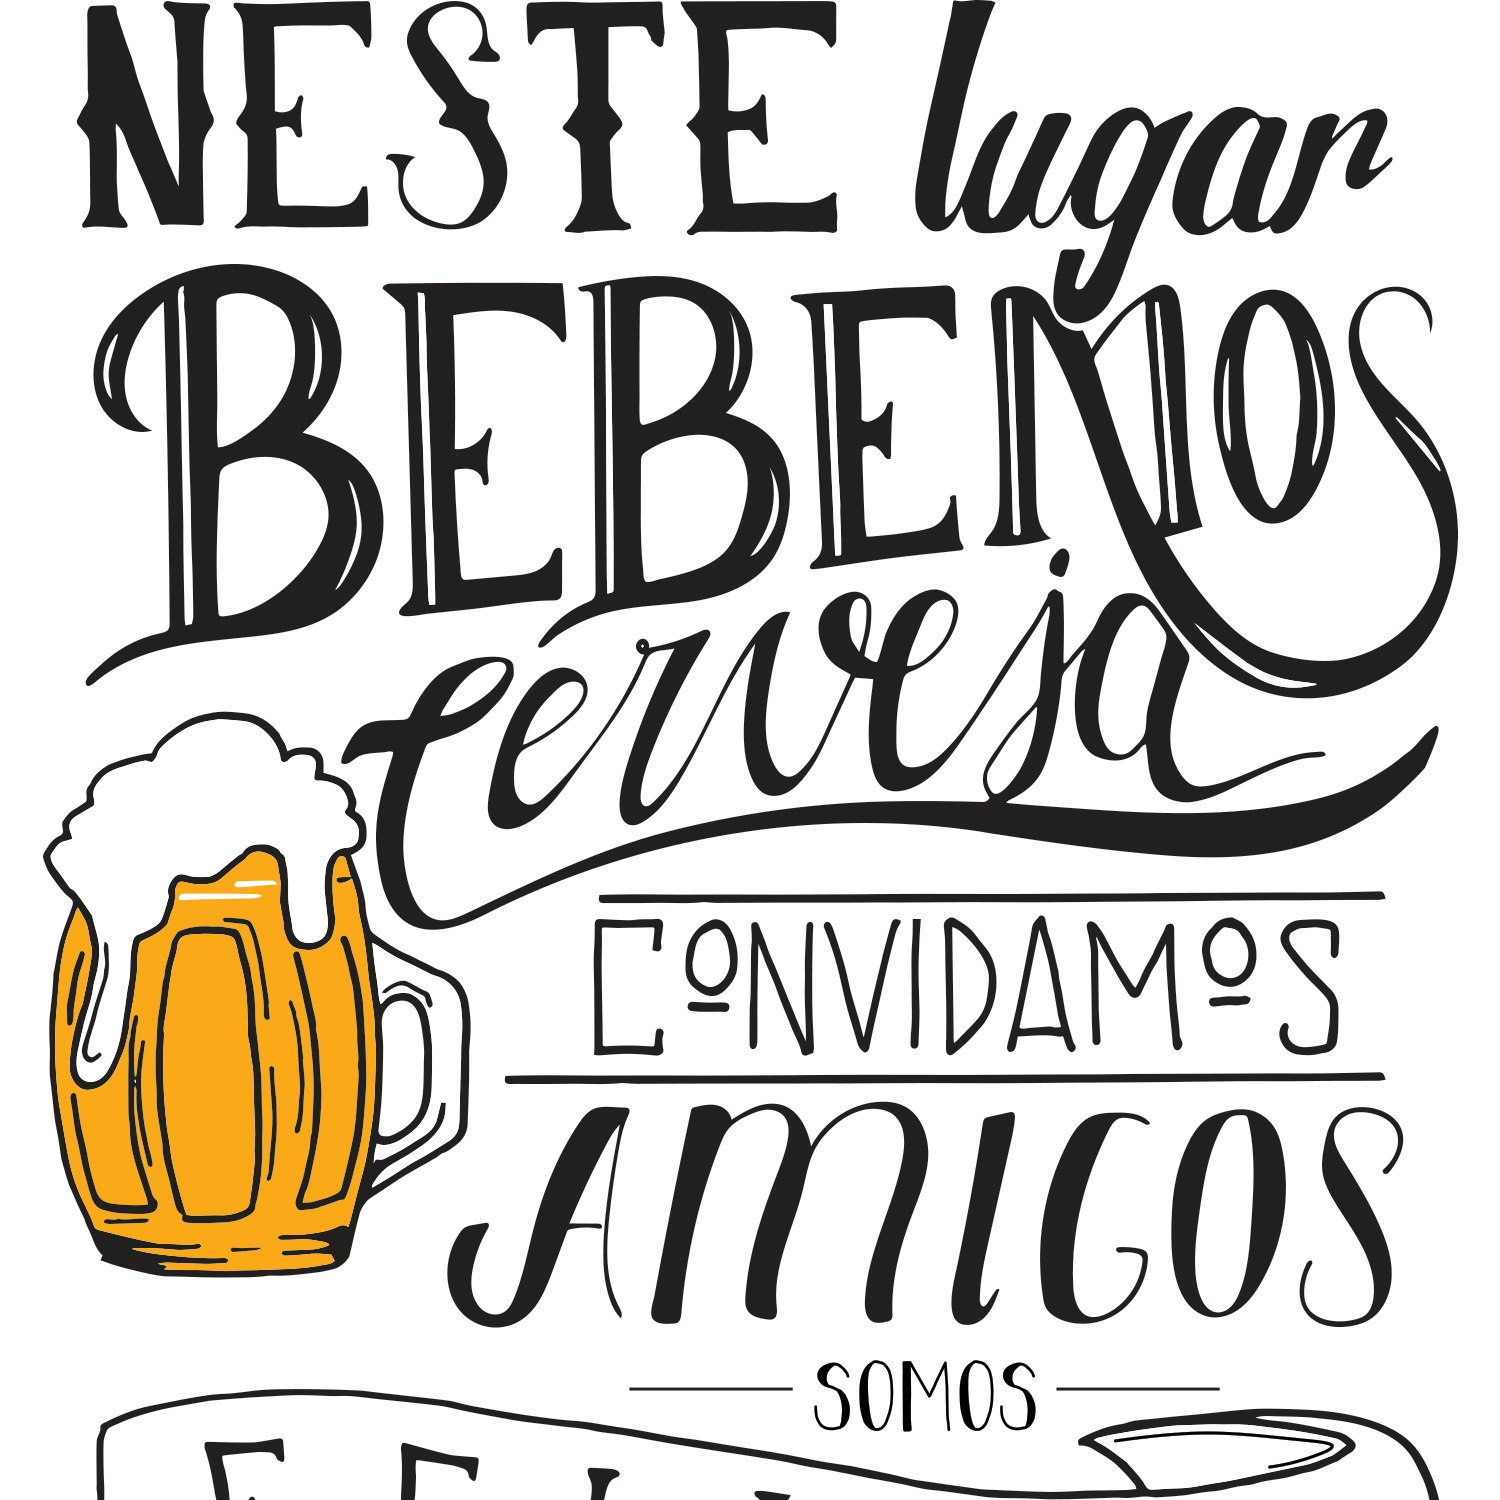 NESTE lugar
BEBEMOS
cerveja
CONVIDAMOS
AMIGOS
SOMOS